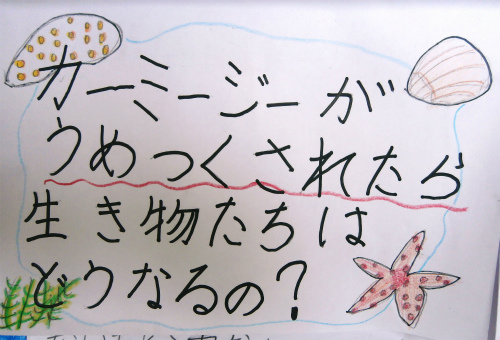 カーミージーが
うめつくされたら
生き物たちは
どうなるの？